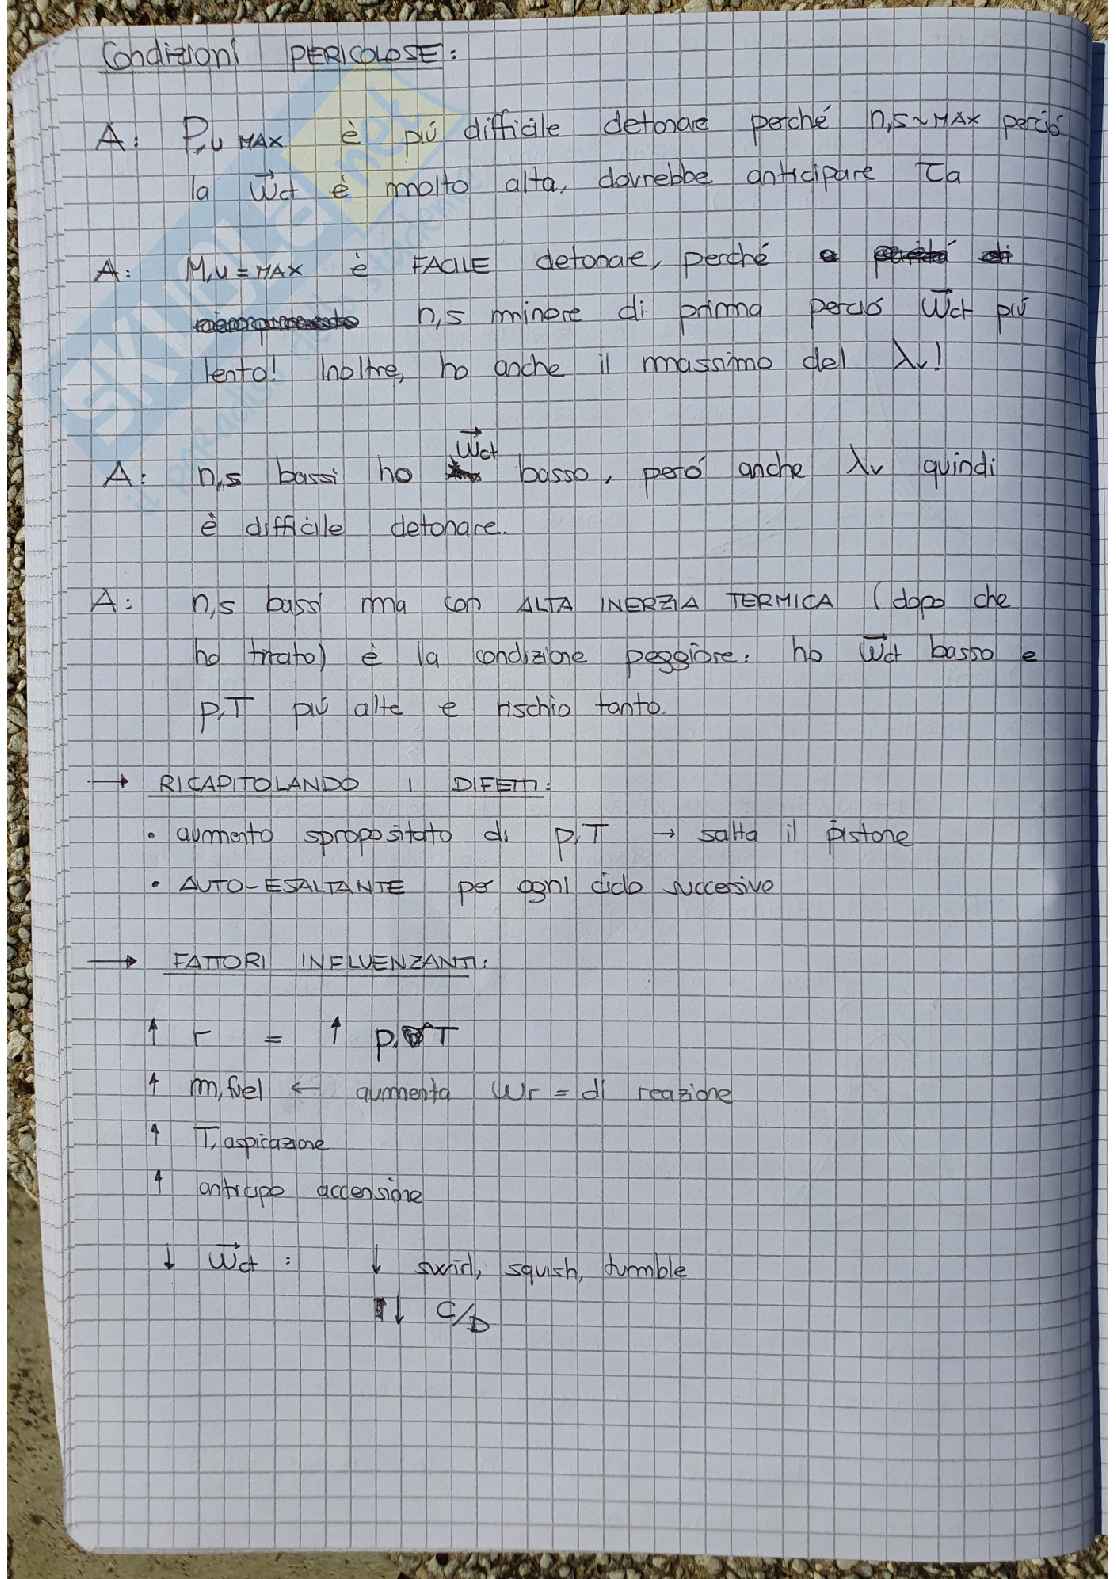 Condizioni PERICOLOSE:
A: P,u MAX è più difficile detonare perché n,s ~ MAX perciò
la w⃗ct è molto alta, dovrebbe anticipare τa
A: M,u = MAX è FACILE detonare, perché
n,s minore di prima perciò w⃗ct più
lento! Inoltre, ho anche il massimo del λv!
A: n,s bassi ho w⃗ct basso, però anche λv quindi
è difficile detonare.
A: n,s bassi ma con ALTA INERZIA TERMICA (dopo che
ho tirato) è la condizione peggiore: ho w⃗ct basso e
p,T più alte e rischio tanto.
→ RICAPITOLANDO I DIFETTI:
• aumento spropositato di p,T → salta il pistone
• AUTO-ESALTANTE per ogni ciclo succesivo
→ FATTORI INFLUENZANTI:
↑ r = ↑ p, T
↑ m,fuel ← aumenta wr = di reazione
↑ T,aspirazione
↑ anticipo accensione
↓ w⃗ct : ↓ swirl, squish, tumble
↓ C/D
SKUOLA.net